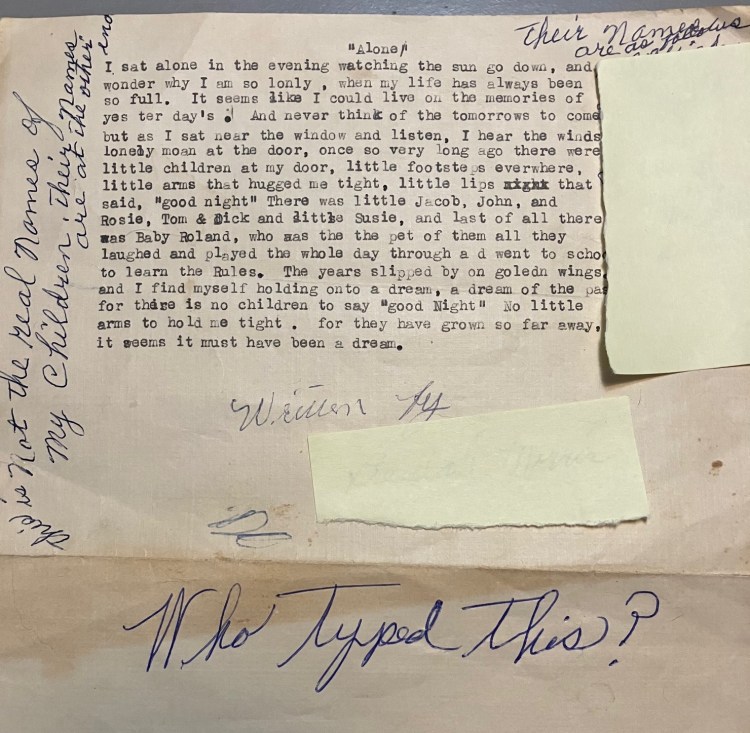 "Alone"
I sat alone in the evening watching the sun go down, and
wonder why I am so lonly , when my life has always been
so full. It seems like I could live on the memories of
yes ter day's . And never think of the tomorrows to come
but as I sat near the window and listen, I hear the winds
lonely moan at the door, once so very long ago there were
little children at my door, little footsteps everwhere,
little arms that hugged me tight, little lips night that
said, "good night" There was little Jacob, John, and
Rosie, Tom & Dick and little Susie, and last of all there
was Baby Roland, who was the the pet of them all they
laughed and played the whole day through a d went to scho
to learn the Rules. The years slipped by on goledn wings
and I find myself holding onto a dream, a dream of the pa
for there is no children to say "good Night" No little
arms to hold me tight . for they have grown so far away,
it seems it must have been a dream.
Written by
Who typed this?
this is Not the real Names of
My Children, their Names
are at the other end
Their Names
are as follows